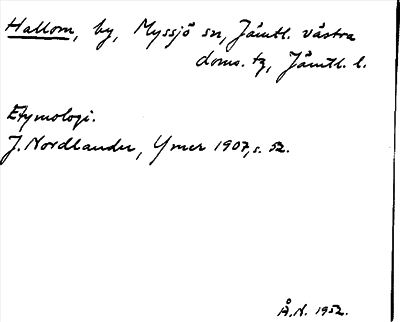 Hallom, by, Myssjö sn, Jämtl. västra
doms. tg, Jämtl. l.
Etymologi.
J. Nordlander, Ymer 1907, s. 52.
Å.N. 1952.